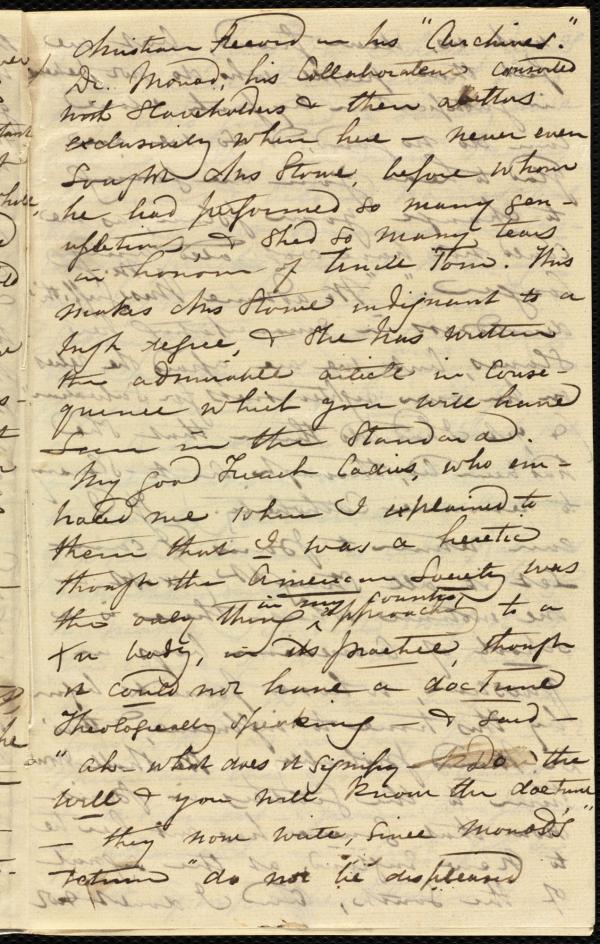 Christian Record in his "Archives."
Dr. Monod, his Collaborateur consorted
with Slaveholders & their abettors
exclusively when here — never even
Sought Mrs Stowe, before whom
he had performed so many gen-
uflections & shed so many tears
in honour of Uncle Tom. This
makes Mrs Stowe indignant to a
high degree, & She has written
the admirable article in Conse-
quence which you will have
Seen in the Standard.
My good French Ladies, who em-
braced me when I explained to
them that I was a heretic
though the American Society was
the only thing in my country, approaching to a
Xn body, in its practice, though
it could not have a doctrine
Theologically speaking — & said —
"ah — what does it signify — Do the
will & you will know the doctrine"
— they now write, since Monod's
return "do not be displeased